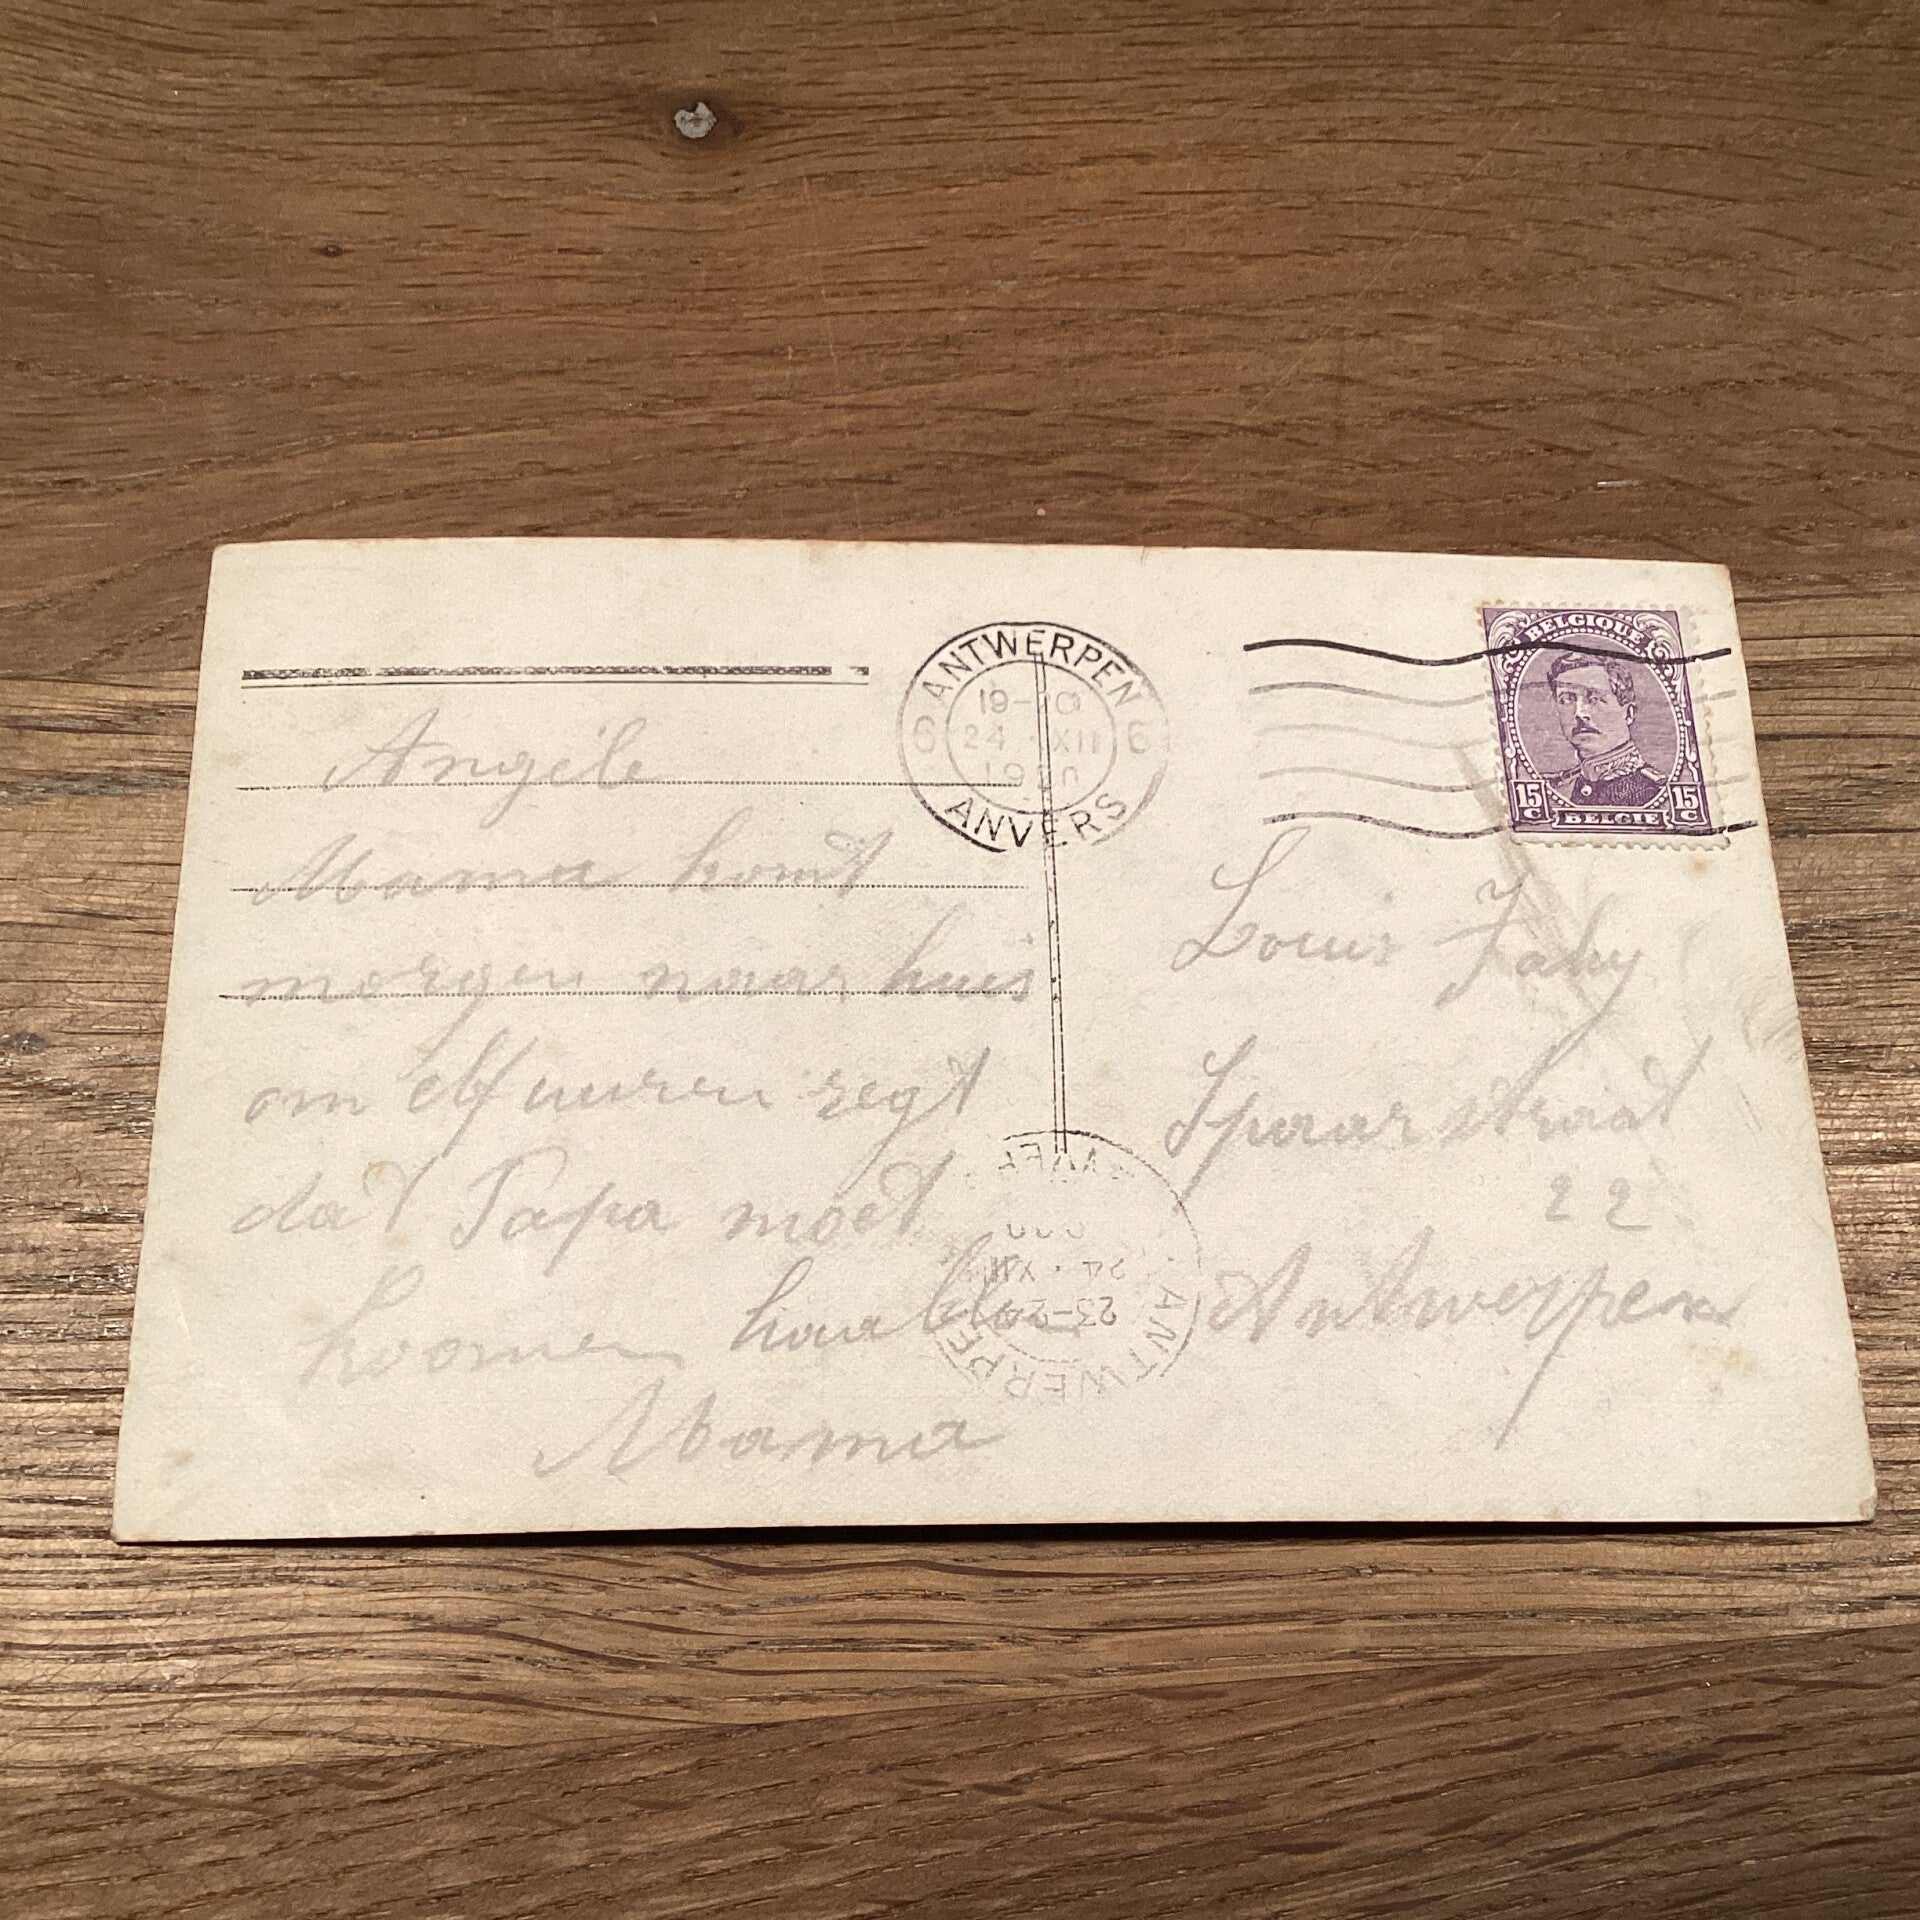 ANTWERPEN
19-20
6 24 · XII 6
1920
ANVERS
BELGIQUE
15 C 15 C
BELGIË
Angéle
Mama komt
morgen naar huis
om elf uuren zegt
dat Papa moet
koomen haalen
Mama
Louis Faby
Spaarstraat
22
Antwerpen
ANTWERPEN
23-24
24 · XII
ANVERS